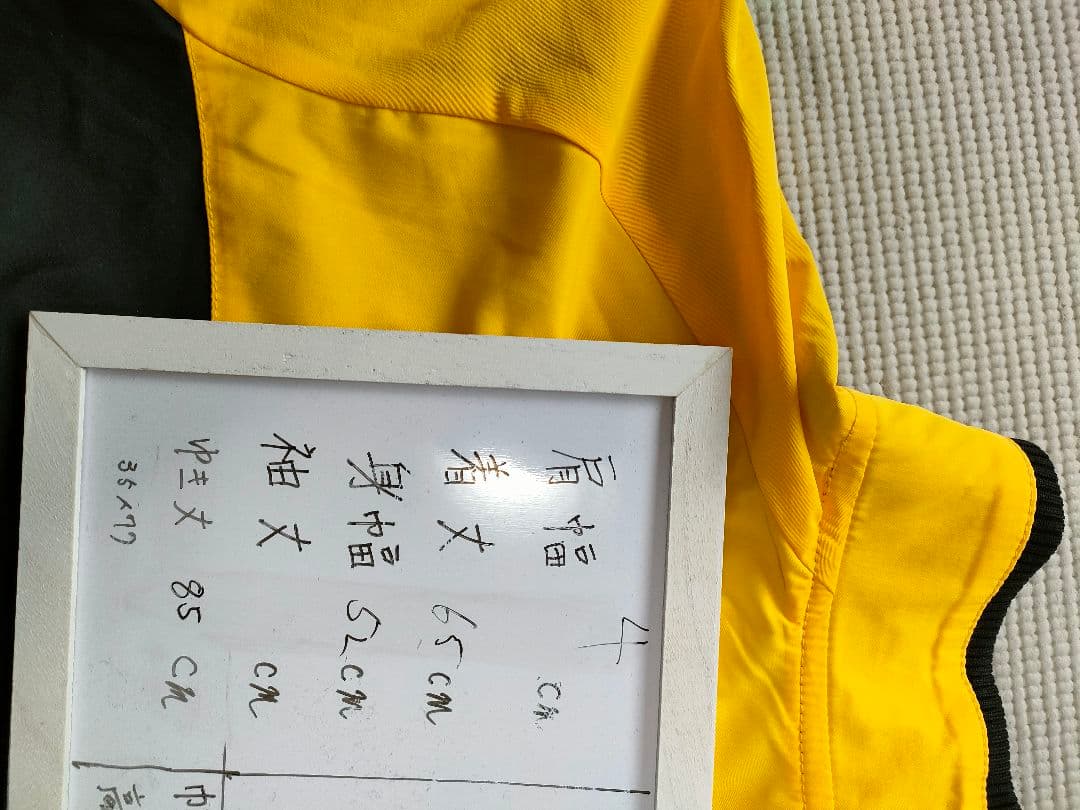 4
肩幅 cm
着丈 65cm
身幅 52cm
袖丈 cm
ゆき丈 85cm 巾
高